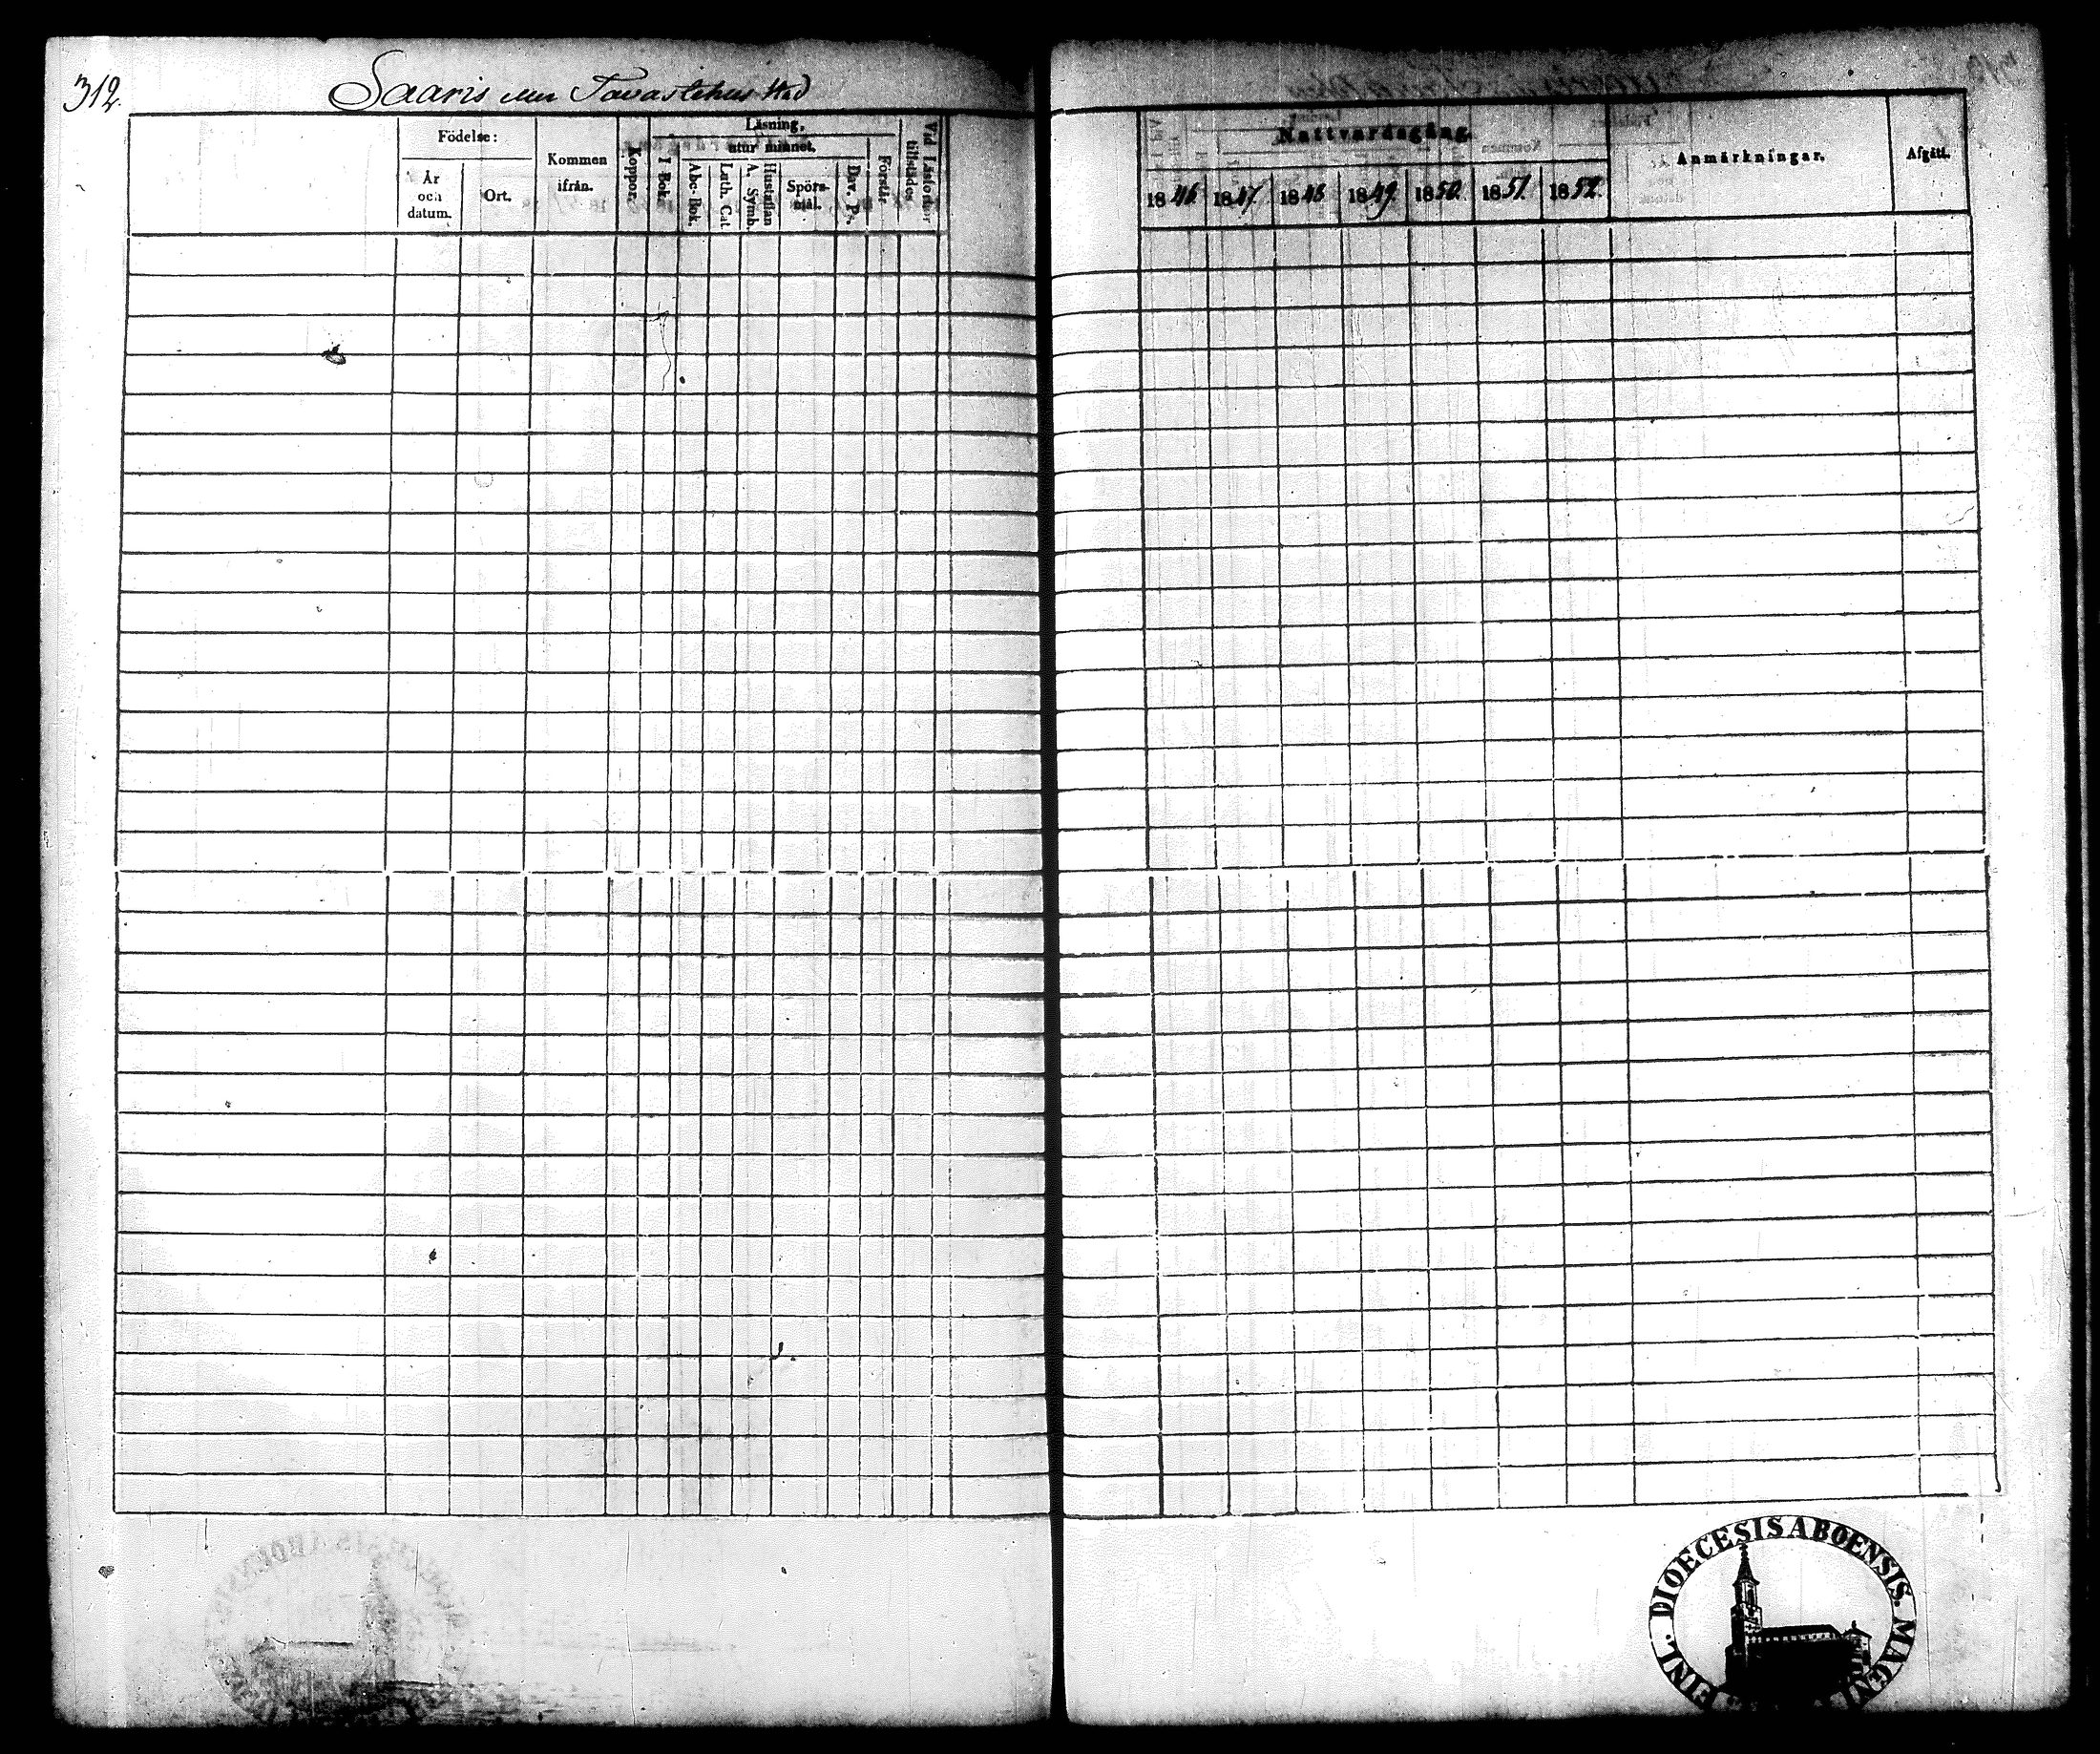 312.
Saaris Tavastehus stad
Födelse:
År och datum.
Ort.
Kommen ifrån.
Koppor.
Läsning,
I Bok.
utur minnet.
Abc-Bok.
Luth. Cat.
Hustaflan A. Symb.
Spörs-mål.
Dav. Ps.
Förstår
Vid Läsförhör tillstädes
Nattvardsgång.
1846. 1847. 1848 1849. 1850. 1851. 1852.
Anmärkningar.
Afgått.
DIOECESIS ABOENSIS. MAGNI FINL.